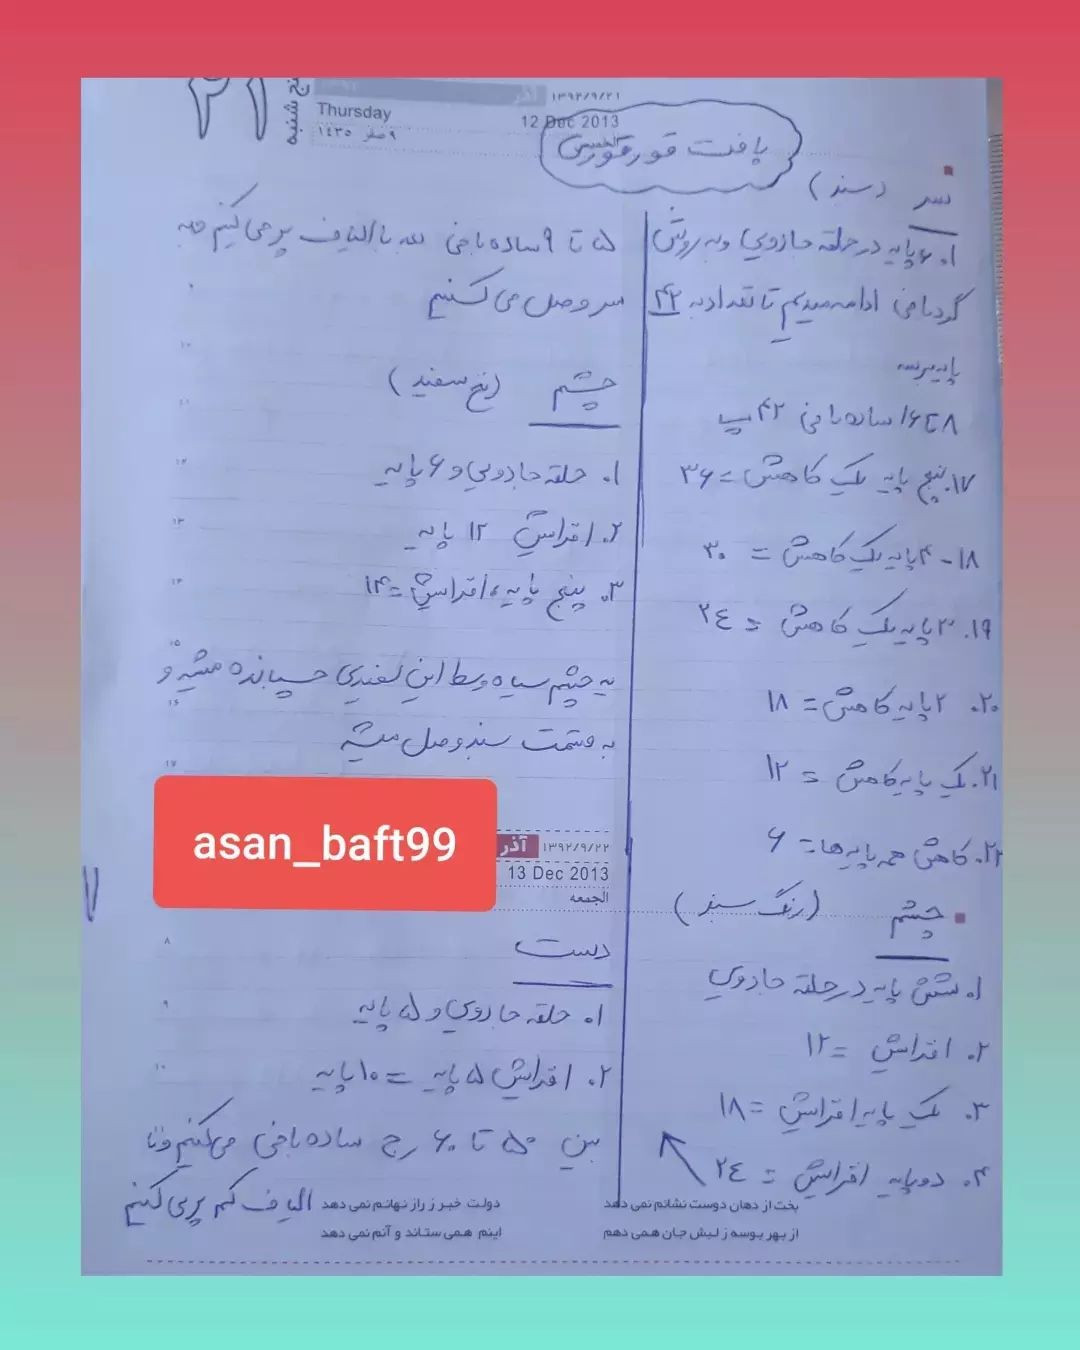 ۲۱
پنج شنبه
آذر ۱۳۹۲/۹/۲۱
Thursday 12 Dec 2013
۹ صفر ۱۴۳۵
بافت قورقوری
سر (سبز)
۱. ۶ پایه در حلقه جادویی و به روش
گردبافی ادامه میدیم تا تعداد به ۴۲
پایه برسه
۸ تا ۱۶ ساده بافی ۴۲ پ
۱۷. پنج پایه یک کاهش = ۳۶
۱۸ - ۴ پایه یک کاهش = ۳۰
۱۹. ۳ پایه یک کاهش = ۲۴
۲۰. ۲ پایه کاهش = ۱۸
۲۱. یک پایه کاهش = ۱۲
۲۲. کاهش همه پایه ها = ۶
چشم (رنگ سبز)
۱. شش پایه در حلقه جادویی
۲. افزایش = ۱۲
۳. یک پایه افزایش = ۱۸
۴. دو پایه افزایش = ۲۴
۵ تا ۹ ساده بافی با الیاف پر می کنیم به
سر وصل می کنیم
چشم (نخ سفید)
۱. حلقه جادویی و ۶ پایه
۲. افزایش ۱۲ پایه
۳. پنج پایه، افزایش = ۱۴
یه چشم سیاه وسط این سفیدی چسبانده میشه و
به قسمت سبز وصل میشه
asan_baft99
آذر ۱۳۹۲/۹/۲۲
13 Dec 2013
الجمعه
دست
۱. حلقه جادویی و ۵ پایه
۲. افزایش ۵ پایه = ۱۰ پایه
بین ۵۰ تا ۶۰ رج ساده بافی می کنیم و با
الیاف کم پر می کنیم
بخت از دهان دوست نشانم نمی دهد دولت خبر ز راز نهانم نمی دهد
از بهر بوسه ز لبش جان همی دهم اینم همی ستاند و آنم نمی دهد